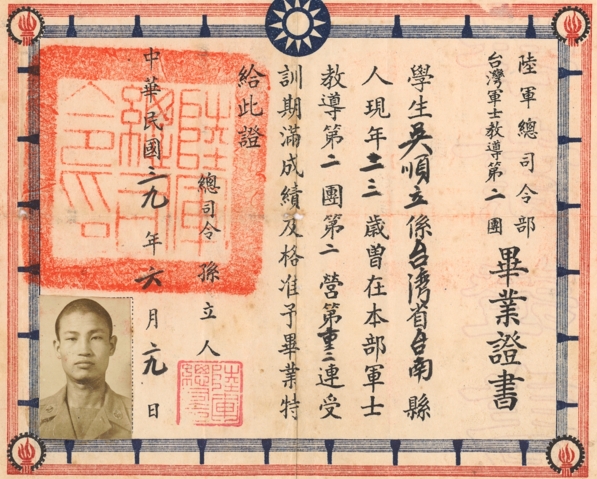 陸軍總司令部
台灣軍士教導第二團
畢業證書
學生吳順立係台灣省台南縣
人現年二三歲曾在本部軍士
教導第二團第二營第重二連受
訓期滿成績及格准予畢業特
給此證
總司令 孫立人
中華民國三九年六月廿九日